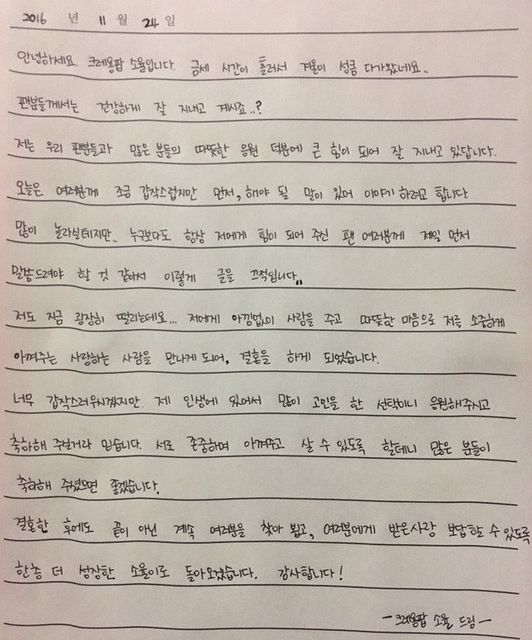 2016 년 11 월 24 일
안녕하세요 크레용팝 소율입니다. 금세 시간이 흘러서 겨울이 성큼 다가왔네요..
팬분들께서는 건강하게 잘 지내고 계시죠..?
저는 우리 팬분들과 많은 분들의 따뜻한 응원 덕분에 큰 힘이 되어 잘 지내고 있답니다.
오늘은 여러분께 조금 갑작스럽지만 먼저, 해야 될 말이 있어 이야기 하려고 합니다
많이 놀라실테지만.. 누구보다도 항상 저에게 힘이 되어 주신 팬 여러분께 제일 먼저
말씀드려야 할 것 같아서 이렇게 글을 끄적입니다..
저도 지금 굉장히 떨리는데요... 저에게 아낌없이 사랑을 주고 따뜻한 마음으로 저를 소중하게
아껴주는 사랑하는 사람을 만나게 되어, 결혼을 하게 되었습니다.
너무 갑작스러우시겠지만 제 인생에 있어서 많이 고민을 한 선택이니 응원해주시고
축하해 주실거라 믿습니다. 서로 존중하며 아껴주고 살 수 있도록 할테니 많은 분들이
축하해 주셨으면 좋겠습니다.
결혼한 후에도 끝이 아닌 계속 여러분을 찾아 뵙고, 여러분에게 받은사랑 보답할 수 있도록
한층 더 성장한 소율이로 돌아오겠습니다. 감사합니다!
- 크레용팝 소율 드림 -